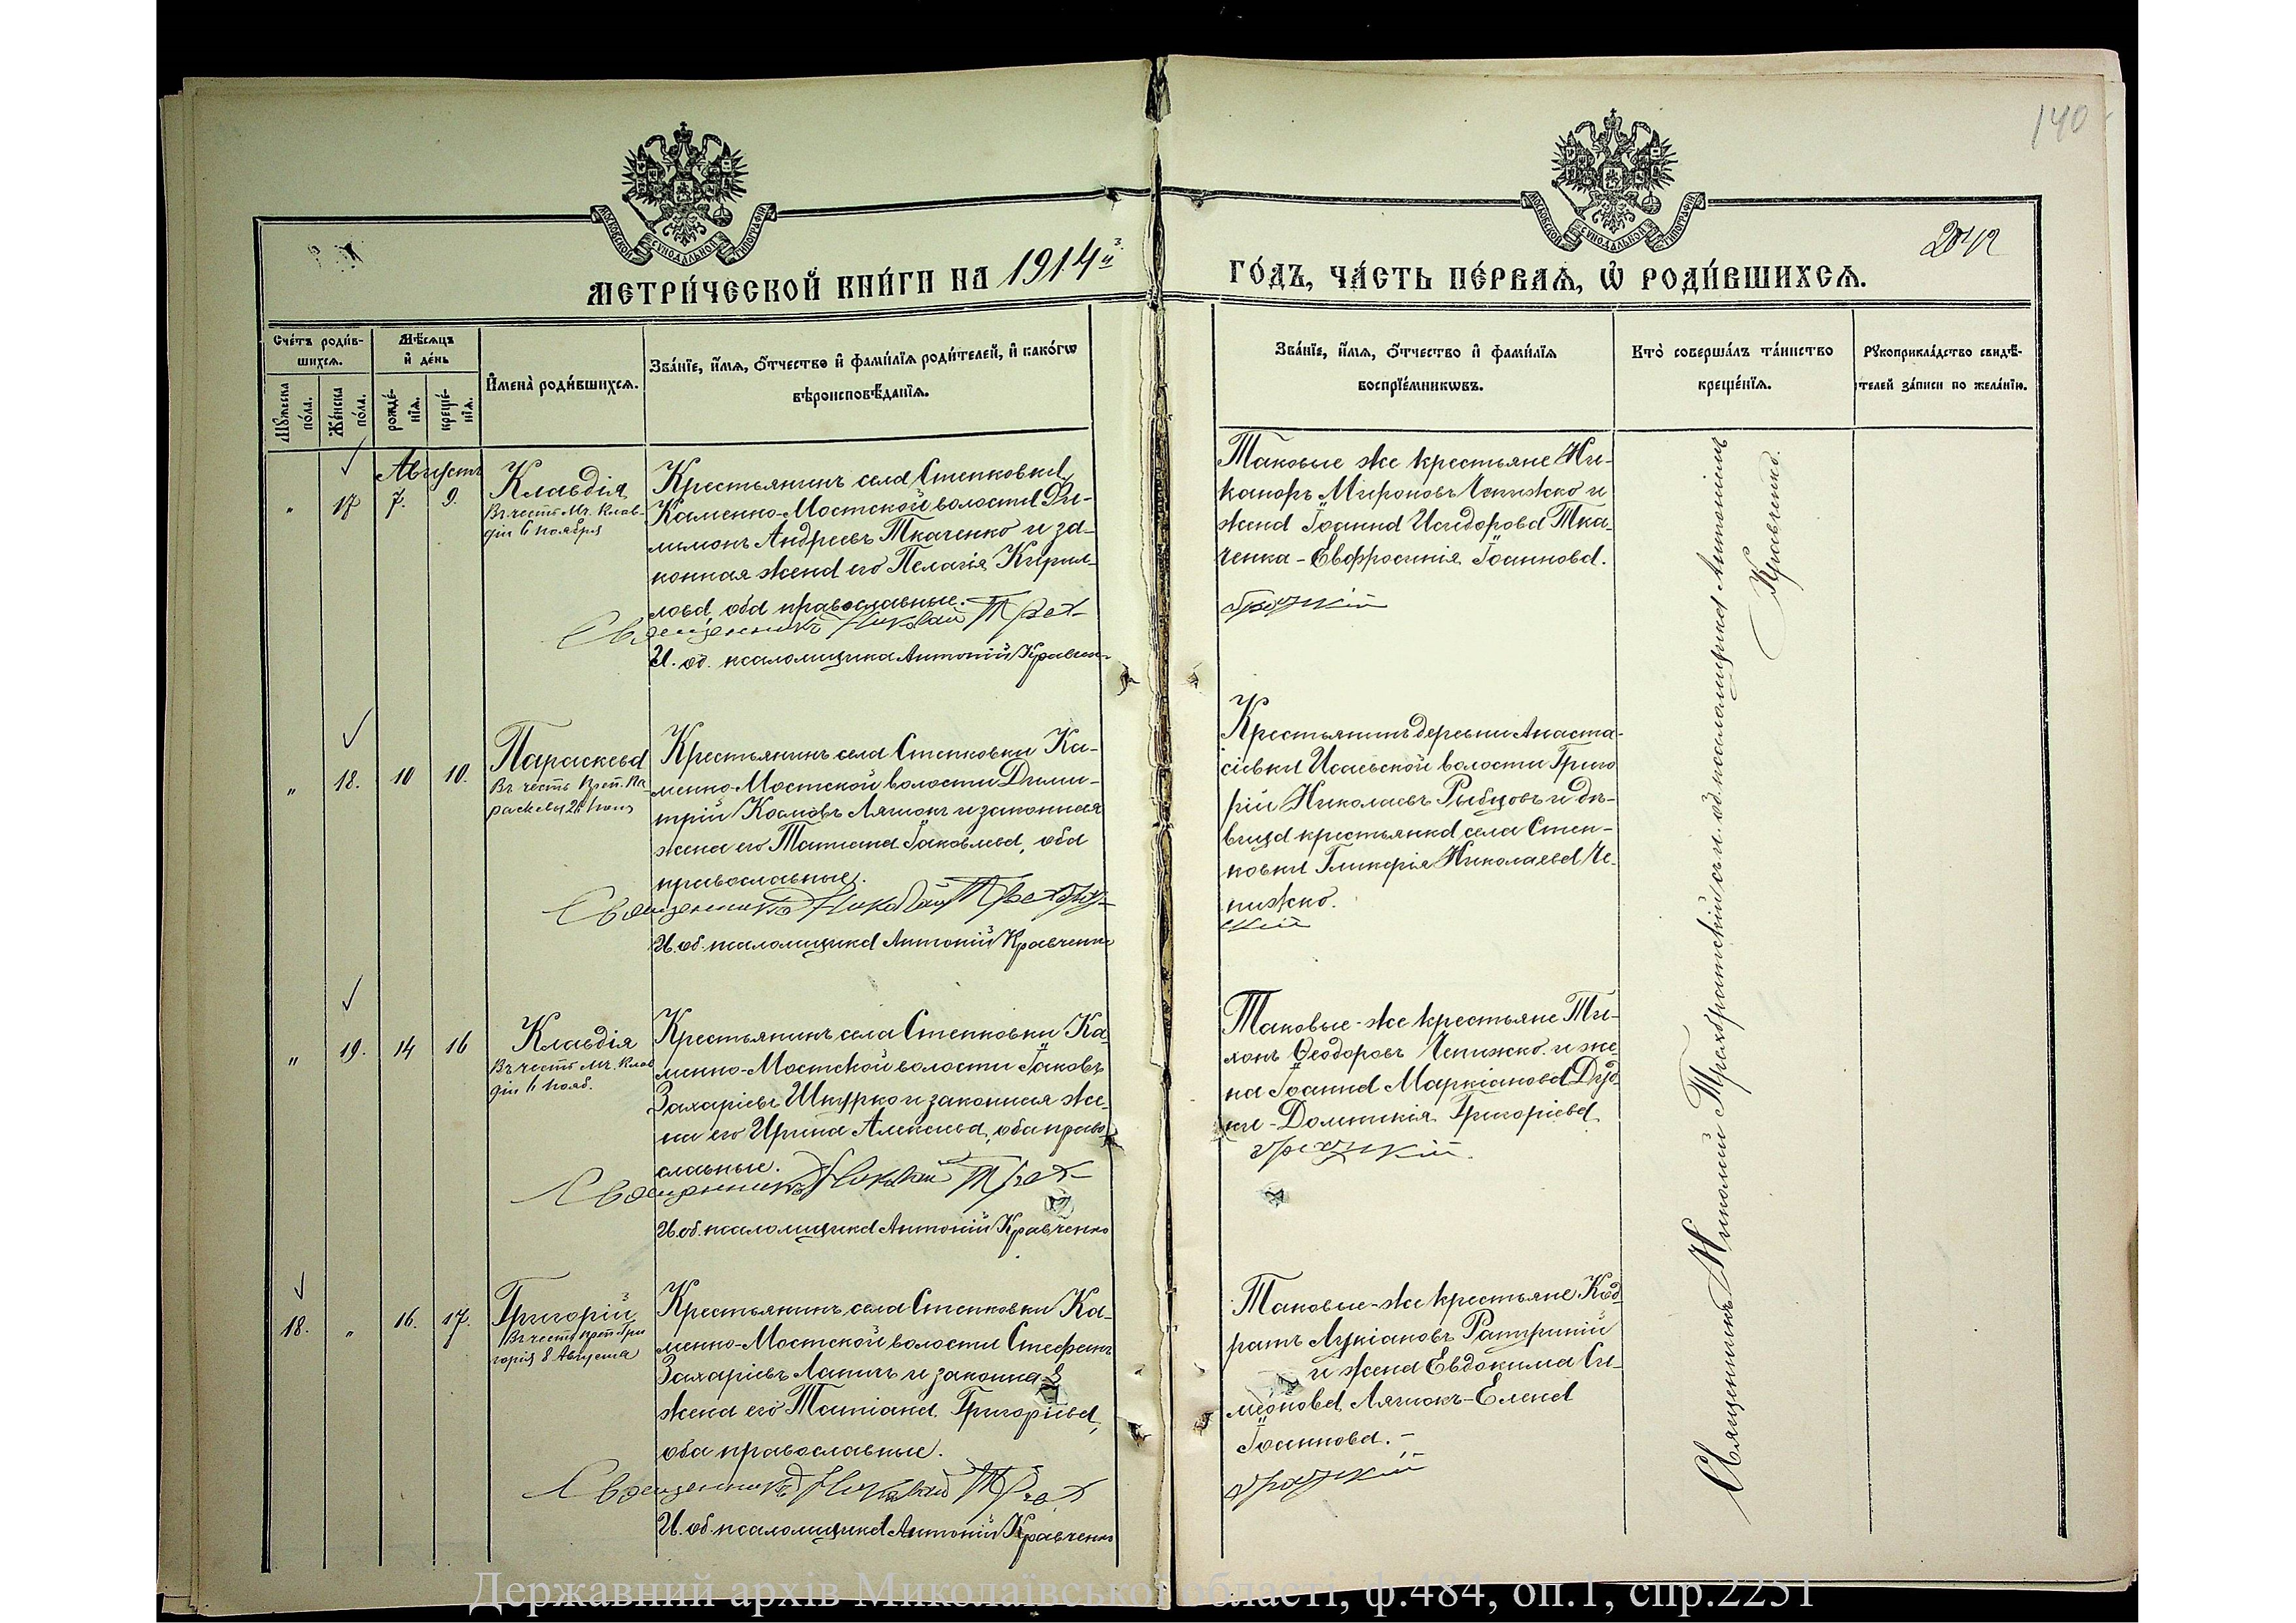 140
204
МЕТРИ́ЧЕСКОЙ КНИ́ГИ НА 1914й
ГО́ДЪ, ЧА́СТЬ ПЕ́РВАѦ, Ѡ҆ РОДИ́ВШИХСѦ.
Сче́тъ роди́в-
шихсѧ.
Мѣ́сѧцъ
и҆ де́нь
Мꙋ́жеска по́ла.
Же́нска по́ла.
рожде́-
нїѧ.
креще́-
нїѧ.
И҆мена̀ роди́вшихсѧ.
Зва́нїе, и҆́мѧ, ѻ҆́тчество и҆ фами́лїѧ роди́телей, и҆ како́гѡ
вѣроисповѣ́данїѧ.
Зва́нїе, и҆́мѧ, ѻ҆́тчество и҆ фами́лїѧ
воспрїе́мникѡвъ.
Кто̀ соверша́лъ та́инство
креще́нїѧ.
Рꙋкоприкла́дство свидѣ́-
телей за́писи по жела́нїю.
Августъ
" 17 7. 9.
Клавдія
Въ честь Мч. Клав-
діи 6 Ноября
Крестьянинъ села Степковки
Каменно-Мостской волости Фи-
лимонъ Андреевъ Ткаченко и за-
конная жена его Пелагія Кирил-
лова, оба православные.
Священникъ Николай Трех-
И. об. псаломщика Антоній Кравчен-
Таковые же крестьяне Ни-
каноръ Мироновъ Чепижко и
жена Іоанна Исидорова Тка-
ченка - Евфросинія Іоаннова.
братскій
" 18. 10 10.
Параскева
Въ честь Преп. Па-
раскевы 26 Іюля
Крестьянинъ села Степковки Ка-
менно-Мостской волости Дими-
трій Космовъ Ляшокъ и законная
жена его Татіана Іаковлева, оба
православные.
Священникъ Николай Трехбрат-
И. об. псаломщика Антоній Кравченко
Крестьянинъ деревни Анаста-
сіевки Исаевской волости Григо
рій Николаевъ Рыбцовъ и дѣ-
вица крестьянка села Степ-
ковки Гликерія Николаева Че-
пижко.
скій
" 19. 14 16
Клавдія
Въ честь Мч. Клав
діи 6 Нояб.
Крестьянинъ села Степковки Ка-
менно-Мостской волости Іаковъ
Захаріевъ Шкурко и законная же-
на его Ирина Алексеева, оба право-
славные.
Священникъ Николай Трех-
И. об. псаломщика Антоній Кравченко
Таковые-же крестьяне Ти-
хонъ Ѳеодоровъ Чепижко и же-
на Іоанна Маркіанова Дуд-
ки - Домникія Григоріева
братскій.
18. " 16. 17.
Григорій
Въ честь преп. Гри
горія 8 Августа
Крестьянинъ села Степковки Ка-
менно-Мостской волости Стефанъ
Захаріевъ Лапичъ и законная
жена его Татіана Григоріева,
оба православные.
Священникъ Николай Трех
И. об. псаломщика Антоній Кравченко
Таковые-же крестьяне Код-
ратъ Лукіановъ
и жена Евдокима Си-
меонова Ляшокъ - Елена
Іоаннова. -
братскій
Священникъ Николай Трехбратскій съ и. об. псаломщика Антоніемъ
Кравченко.
Державний архів Миколаївської області, ф.484, оп.1, спр.2251